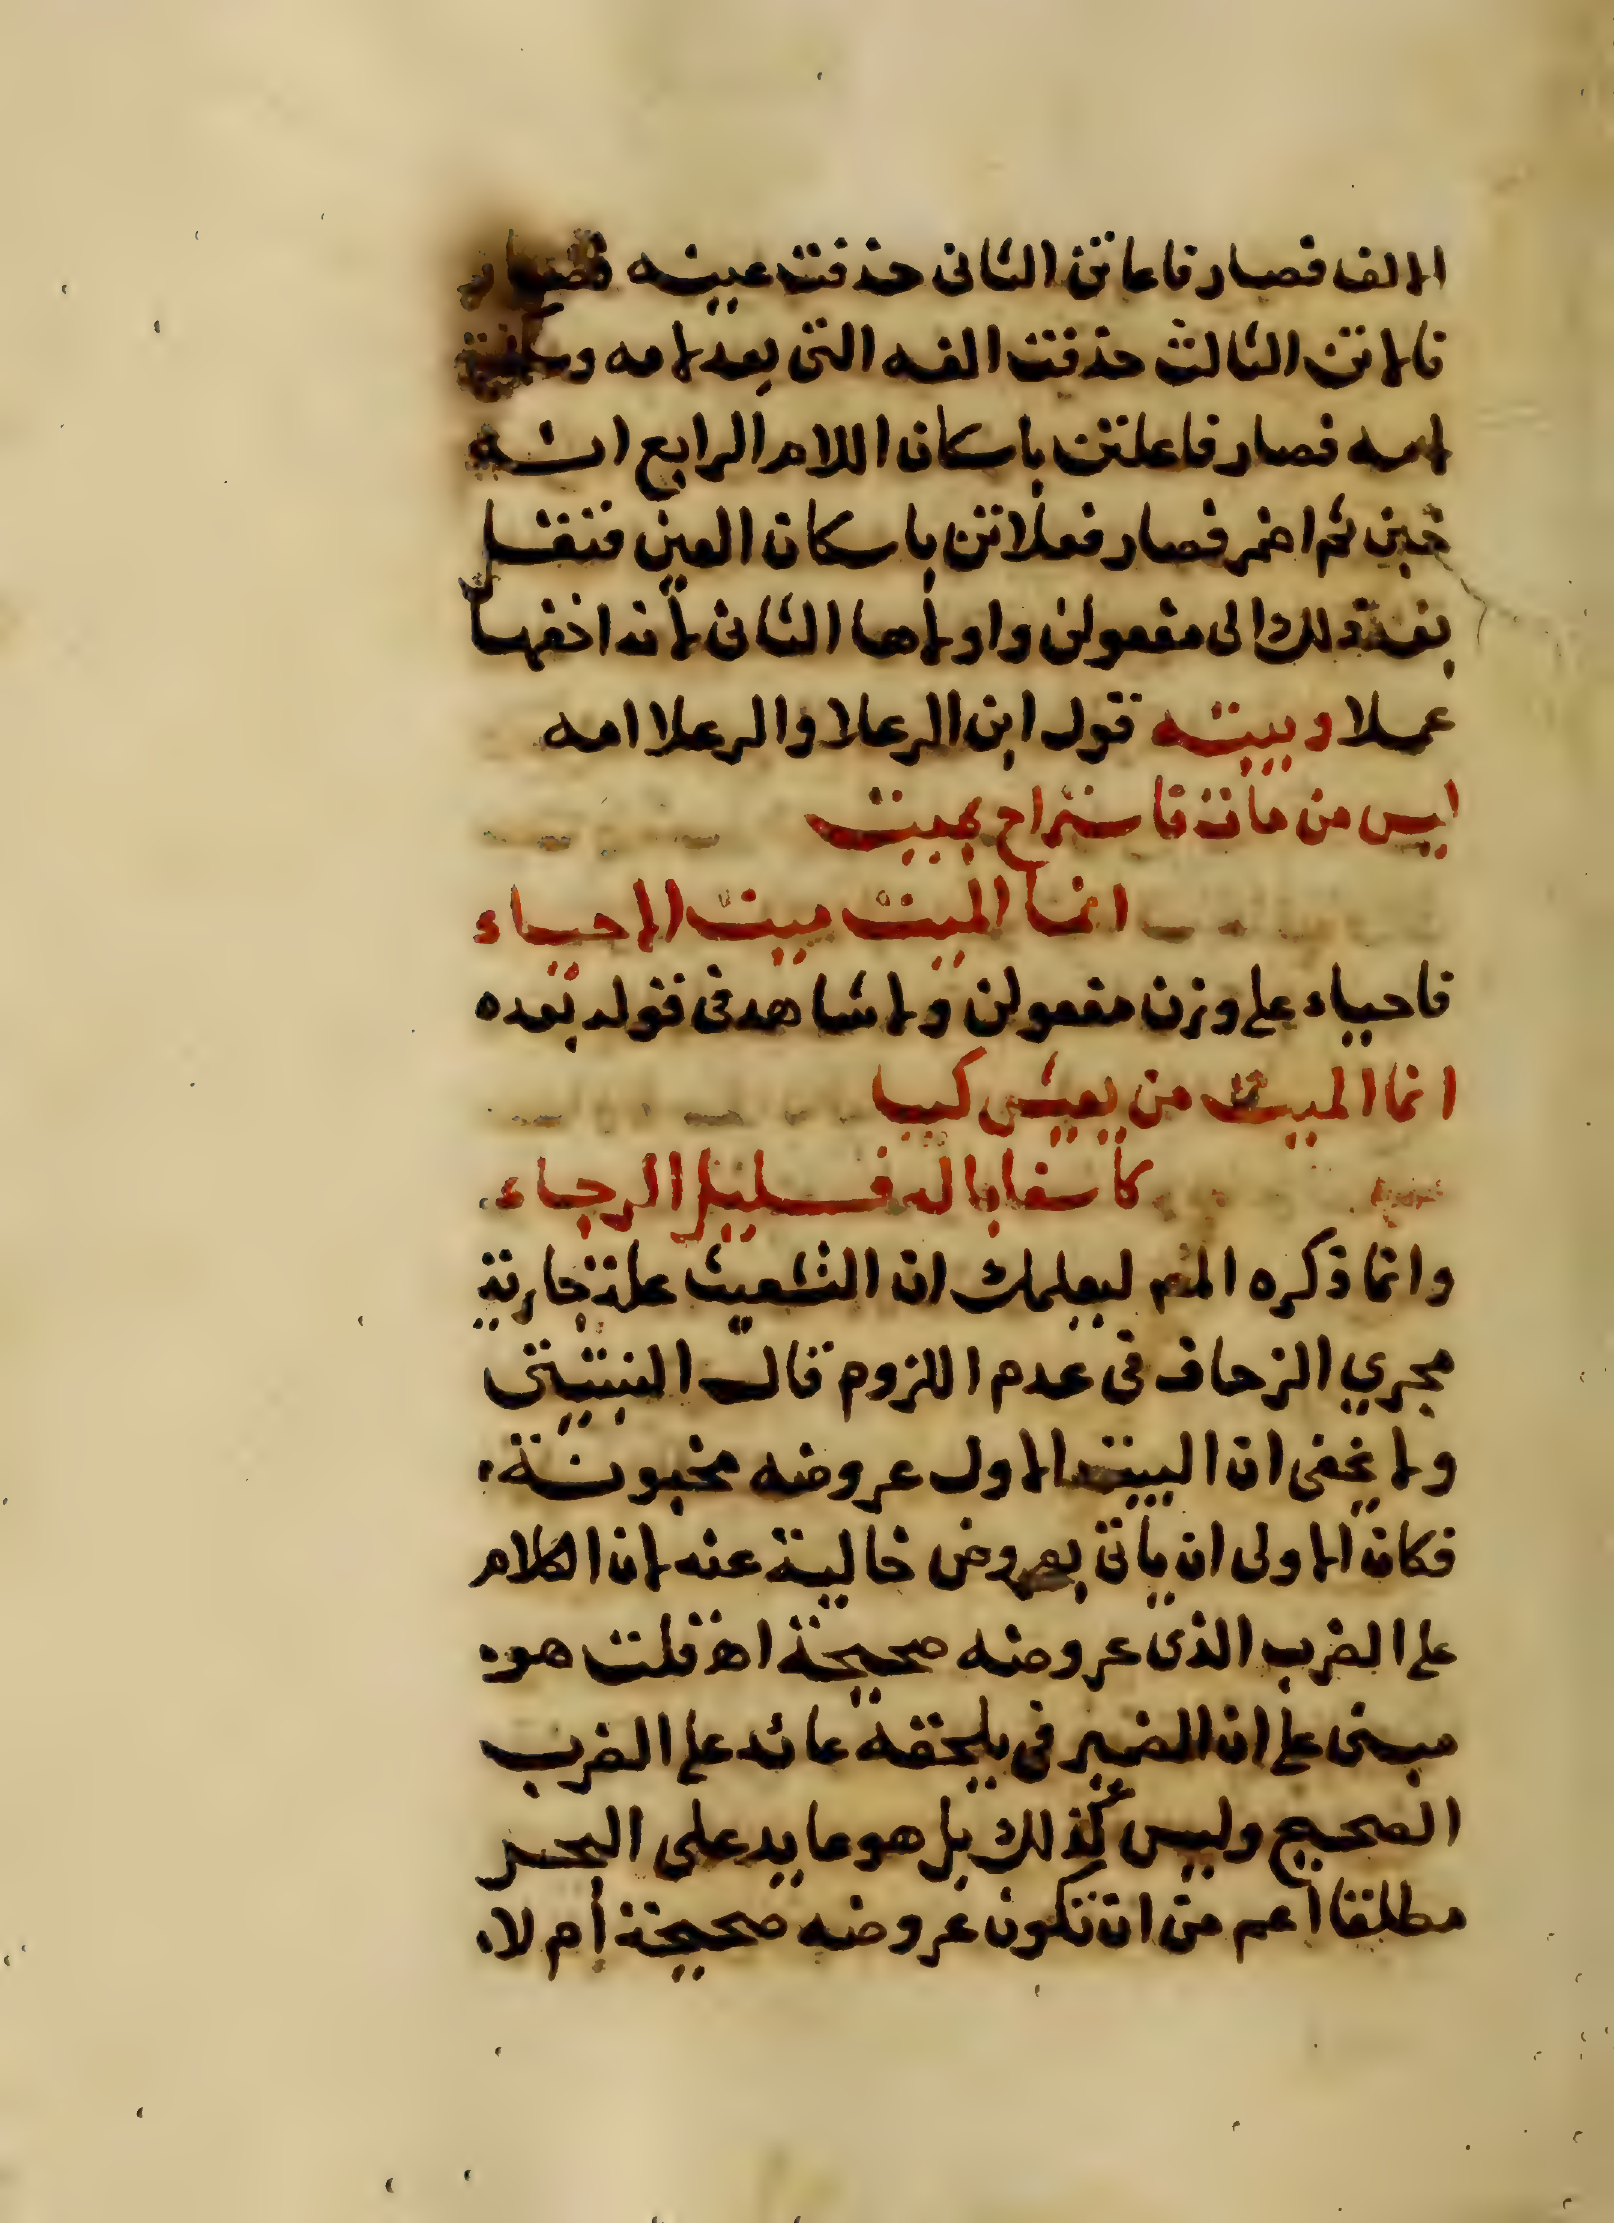 الالف فصار فاعاتن الثانى حذفت عينه فصار
فالاتن الثالث حذفت الفه التى بعد لامه وسكنت
لامه فصار فاعلتن باسكان اللام الرابع انه
خبن ثم اضمر فصار فعلاتن باسكان العين فتنقل
بعد ذلك الى مفعولن واولاها الثانى لانه اخفها
عملا وبيته قول ابن الرعلا والرعلا امه
ليس من مات فاستراح بميت
انما الميت ميت الاحياء
فاحياء على وزن مفعولن ولا شاهد فى قوله بعده
انما الميت من يعيش كيبا
كاسفا باله قليل الرجاء
وانما ذكره المص ليعلمك ان التشعيث علة جارية
مجري الزحاف فى عدم اللزوم قال النبتيتى
ولا يخفى ان البيت الاول عروضه مخبونة
فكان الاولى ان يأتى بعروض خالية عنه لان الكلام
على الضرب الذى عروضه صحيحة اهـ قلت هو
مبنى على ان الضمير فى يلحقه عائد على الضرب
الصحيح وليس كذلك بل هو عايد على البحر
مطلقا اعم من ان تكون عروضه صحيحة أم لا